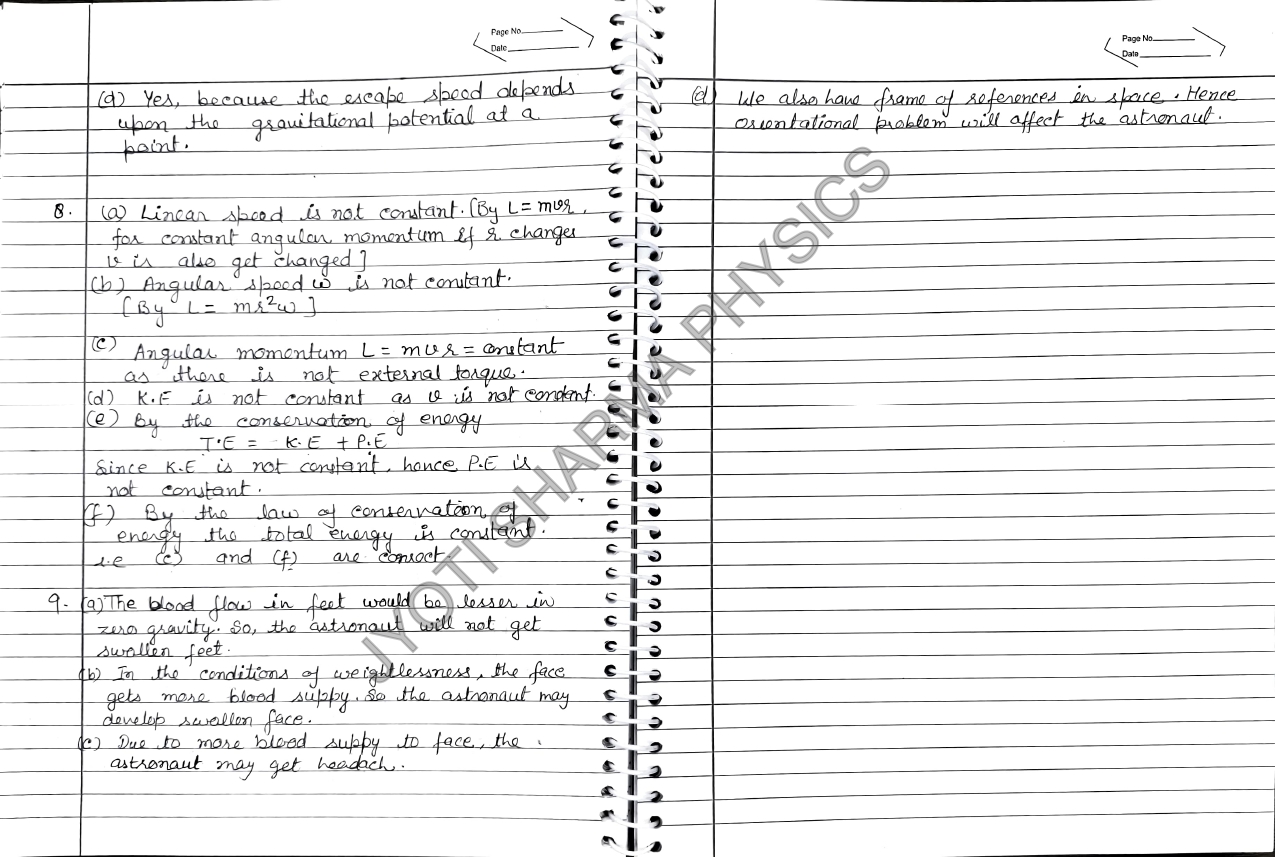 Page No.
Date
(d) Yes, because the escape speed depends
upon the gravitational potential at a
point.
8. (a) Linear speed is not constant. [By L = mvr,
for constant angular momentum if r changes
v is also get changed]
(b) Angular speed ω is not constant.
[By L = mr²ω]
(c) Angular momentum L = mvr = constant
as there is not external torque.
(d) K.E is not constant as v is not constant.
(e) By the conservation of energy
T.E = K.E + P.E
Since K.E is not constant, hence P.E is
not constant.
(f) By the law of conservation of
energy the total energy is constant.
i.e (c) and (f) are correct.
9. (a) The blood flow in feet would be lesser in
zero gravity. So, the astronaut will not get
swollen feet.
(b) In the conditions of weightlessness, the face
gets more blood supply. So the astronaut may
develop swollen face.
(c) Due to more blood suppy to face, the
astronaut may get headach.
Page No.
Date
(d) We also have frame of references in space. Hence
orientational problem will affect the astronaut.
JYOTI SHARMA PHYSICS